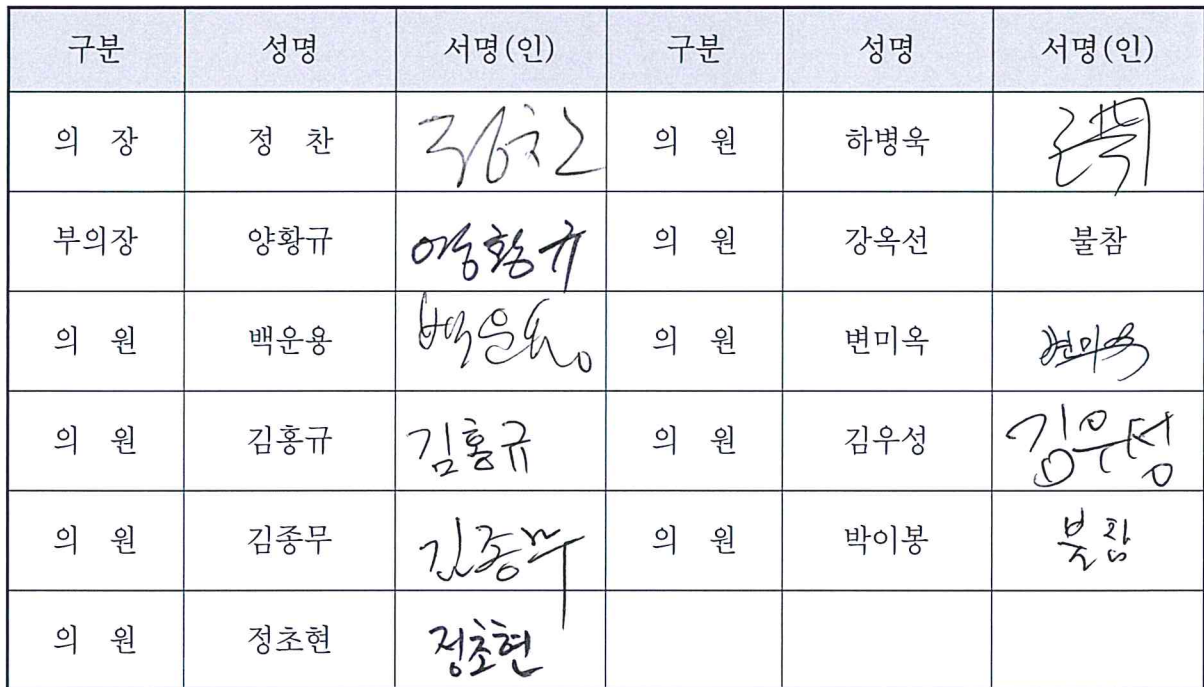 구분 성명 서명(인) 구분 성명 서명(인)
의 장 정 찬 정찬 의 원 하병욱
부의장 양황규 양황규 의 원 강옥선 불참
의 원 백운용 백운용 의 원 변미옥 변미옥
의 원 김홍규 김홍규 의 원 김우성 김우성
의 원 김종무 김종무 의 원 박이봉 불참
의 원 정초현 정초현